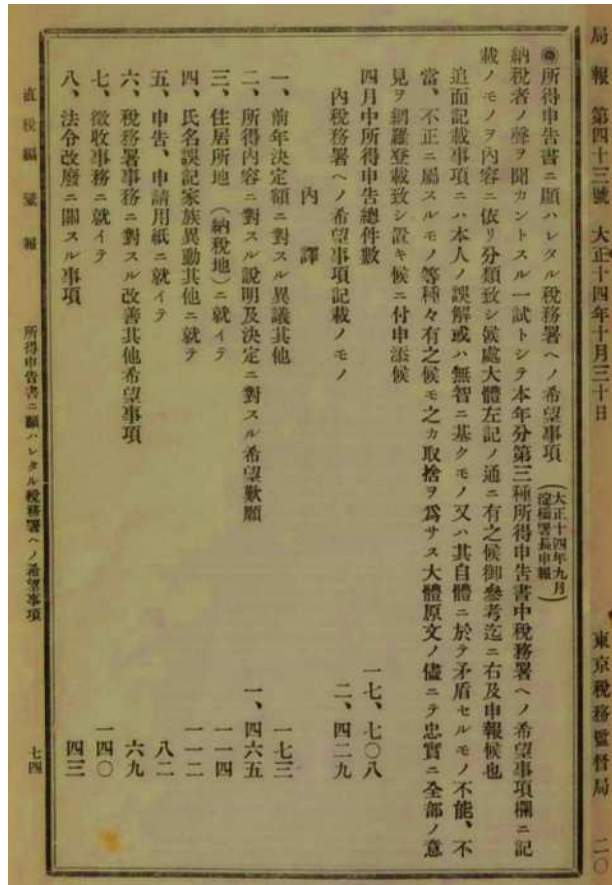 局報　第四十三號　大正十四年十月三十日　東京税務監督局　二〇
◉所得申告書ニ顯ハレタル税務署ヘノ希望事項（大正十四年九月淀橋署長申報）
納税者ノ聲ヲ聞カントスル一試トシテ本年分第三種所得申告書中税務署ヘノ希望事項欄ニ記
載ノモノヲ内容ニ依リ分類致シ候處大體左記ノ通ニ有之候御參考迄ニ右及申報候也
追而記載事項ニハ本人ノ誤解或ハ無智ニ基クモノ又ハ其自體ニ於テ矛盾セルモノ不能、不
當、不正ニ屬スルモノ等種々有之候モ之カ取捨ヲ爲サス大體原文ノ儘ニテ忠實ニ全部ノ意
見ヲ網羅登載致シ置キ候ニ付申添候
四月中所得申告總件數　一七、七〇八
内税務署ヘノ希望事項記載ノモノ　二、四二九
内譯
一、前年決定額ニ對スル異議其他　一七三
二、所得内容ニ對スル説明及決定ニ對スル希望歎願　一、四六五
三、住居所地（納税地）ニ就イテ　一一四
四、氏名誤記家族異動其他ニ就テ　一一二
五、申告、申請用紙ニ就イテ　八二
六、税務署事務ニ對スル改善其他希望事項　六九
七、徴收事務ニ就イテ　一四〇
八、法令改廢ニ關スル事項　四三
直税編　彙報　所得申告書ニ顯ハレタル税務署ヘノ希望事項　七四